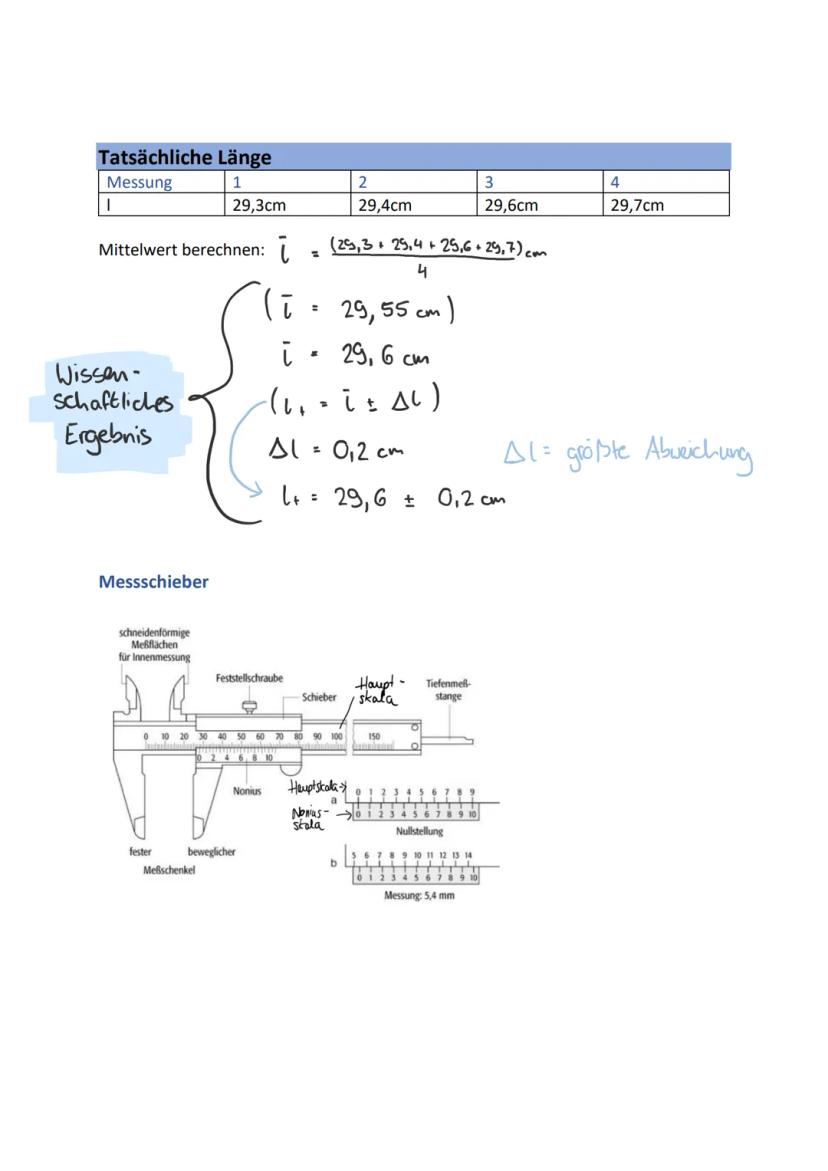 Tatsächliche Länge
Messung 1 2 3 4
l 29,3cm 29,4cm 29,6cm 29,7cm
Mittelwert berechnen: l̄ = (29,3 + 29,4 + 29,6 + 29,7) cm
4
(l̄ = 29,55 cm)
l̄ = 29,6 cm
Wissen-
schaftliches
Ergebnis
(lₜ = l̄ ± Δl)
Δl = 0,2 cm
Δl = größte Abweichung
lₜ = 29,6 ± 0,2 cm
Messschieber
schneidenförmige
Meßflächen
für Innenmessung
Feststellschraube
Schieber
Haupt-
skala
Tiefenmeß-
stange
0 10 20 30 40 50 60 70 80 90 100 150
0 2 4 6 8 10
Nonius
Hauptskala → 0 1 2 3 4 5 6 7 8 9
a
Nonius-
skala
→ 0 1 2 3 4 5 6 7 8 9 10
Nullstellung
fester beweglicher
Meßschenkel
b
5 6 7 8 9 10 11 12 13 14
0 1 2 3 4 5 6 7 8 9 10
Messung: 5,4 mm